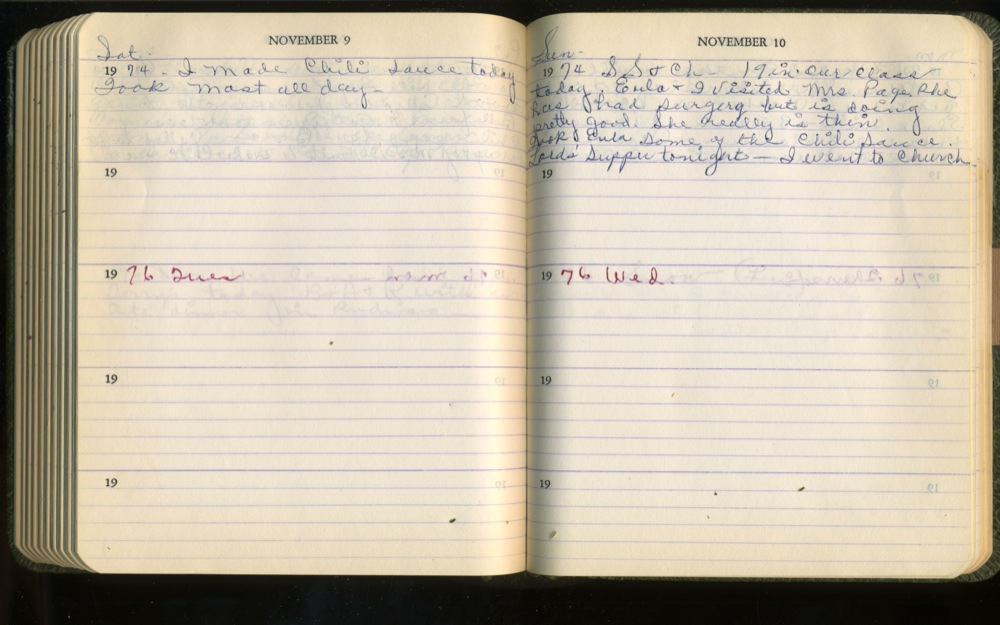 NOVEMBER 9
Sat.
1974. I made Chili Sauce today
Took most all day-
19
1976 Tues
19
19
NOVEMBER 10
Sun.
1974 S S & Ch- 19 in our class
today. Eula & I visited Mrs. Page. She
has had surgery but is doing
pretty good. She really is thin.
Took Eula some of the Chili Sauce.
Lords Supper tonight - I went to Church.
19
1976 Wed.
19
19